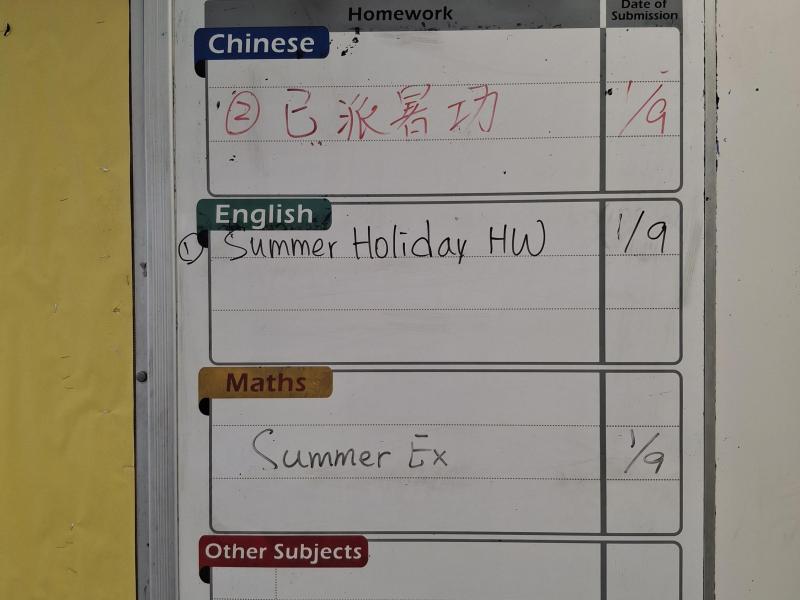 Homework
Date of
Submission
Chinese
② 已派暑功 1/9
English
① Summer Holiday HW 1/9
Maths
Summer Ex 1/9
Other Subjects